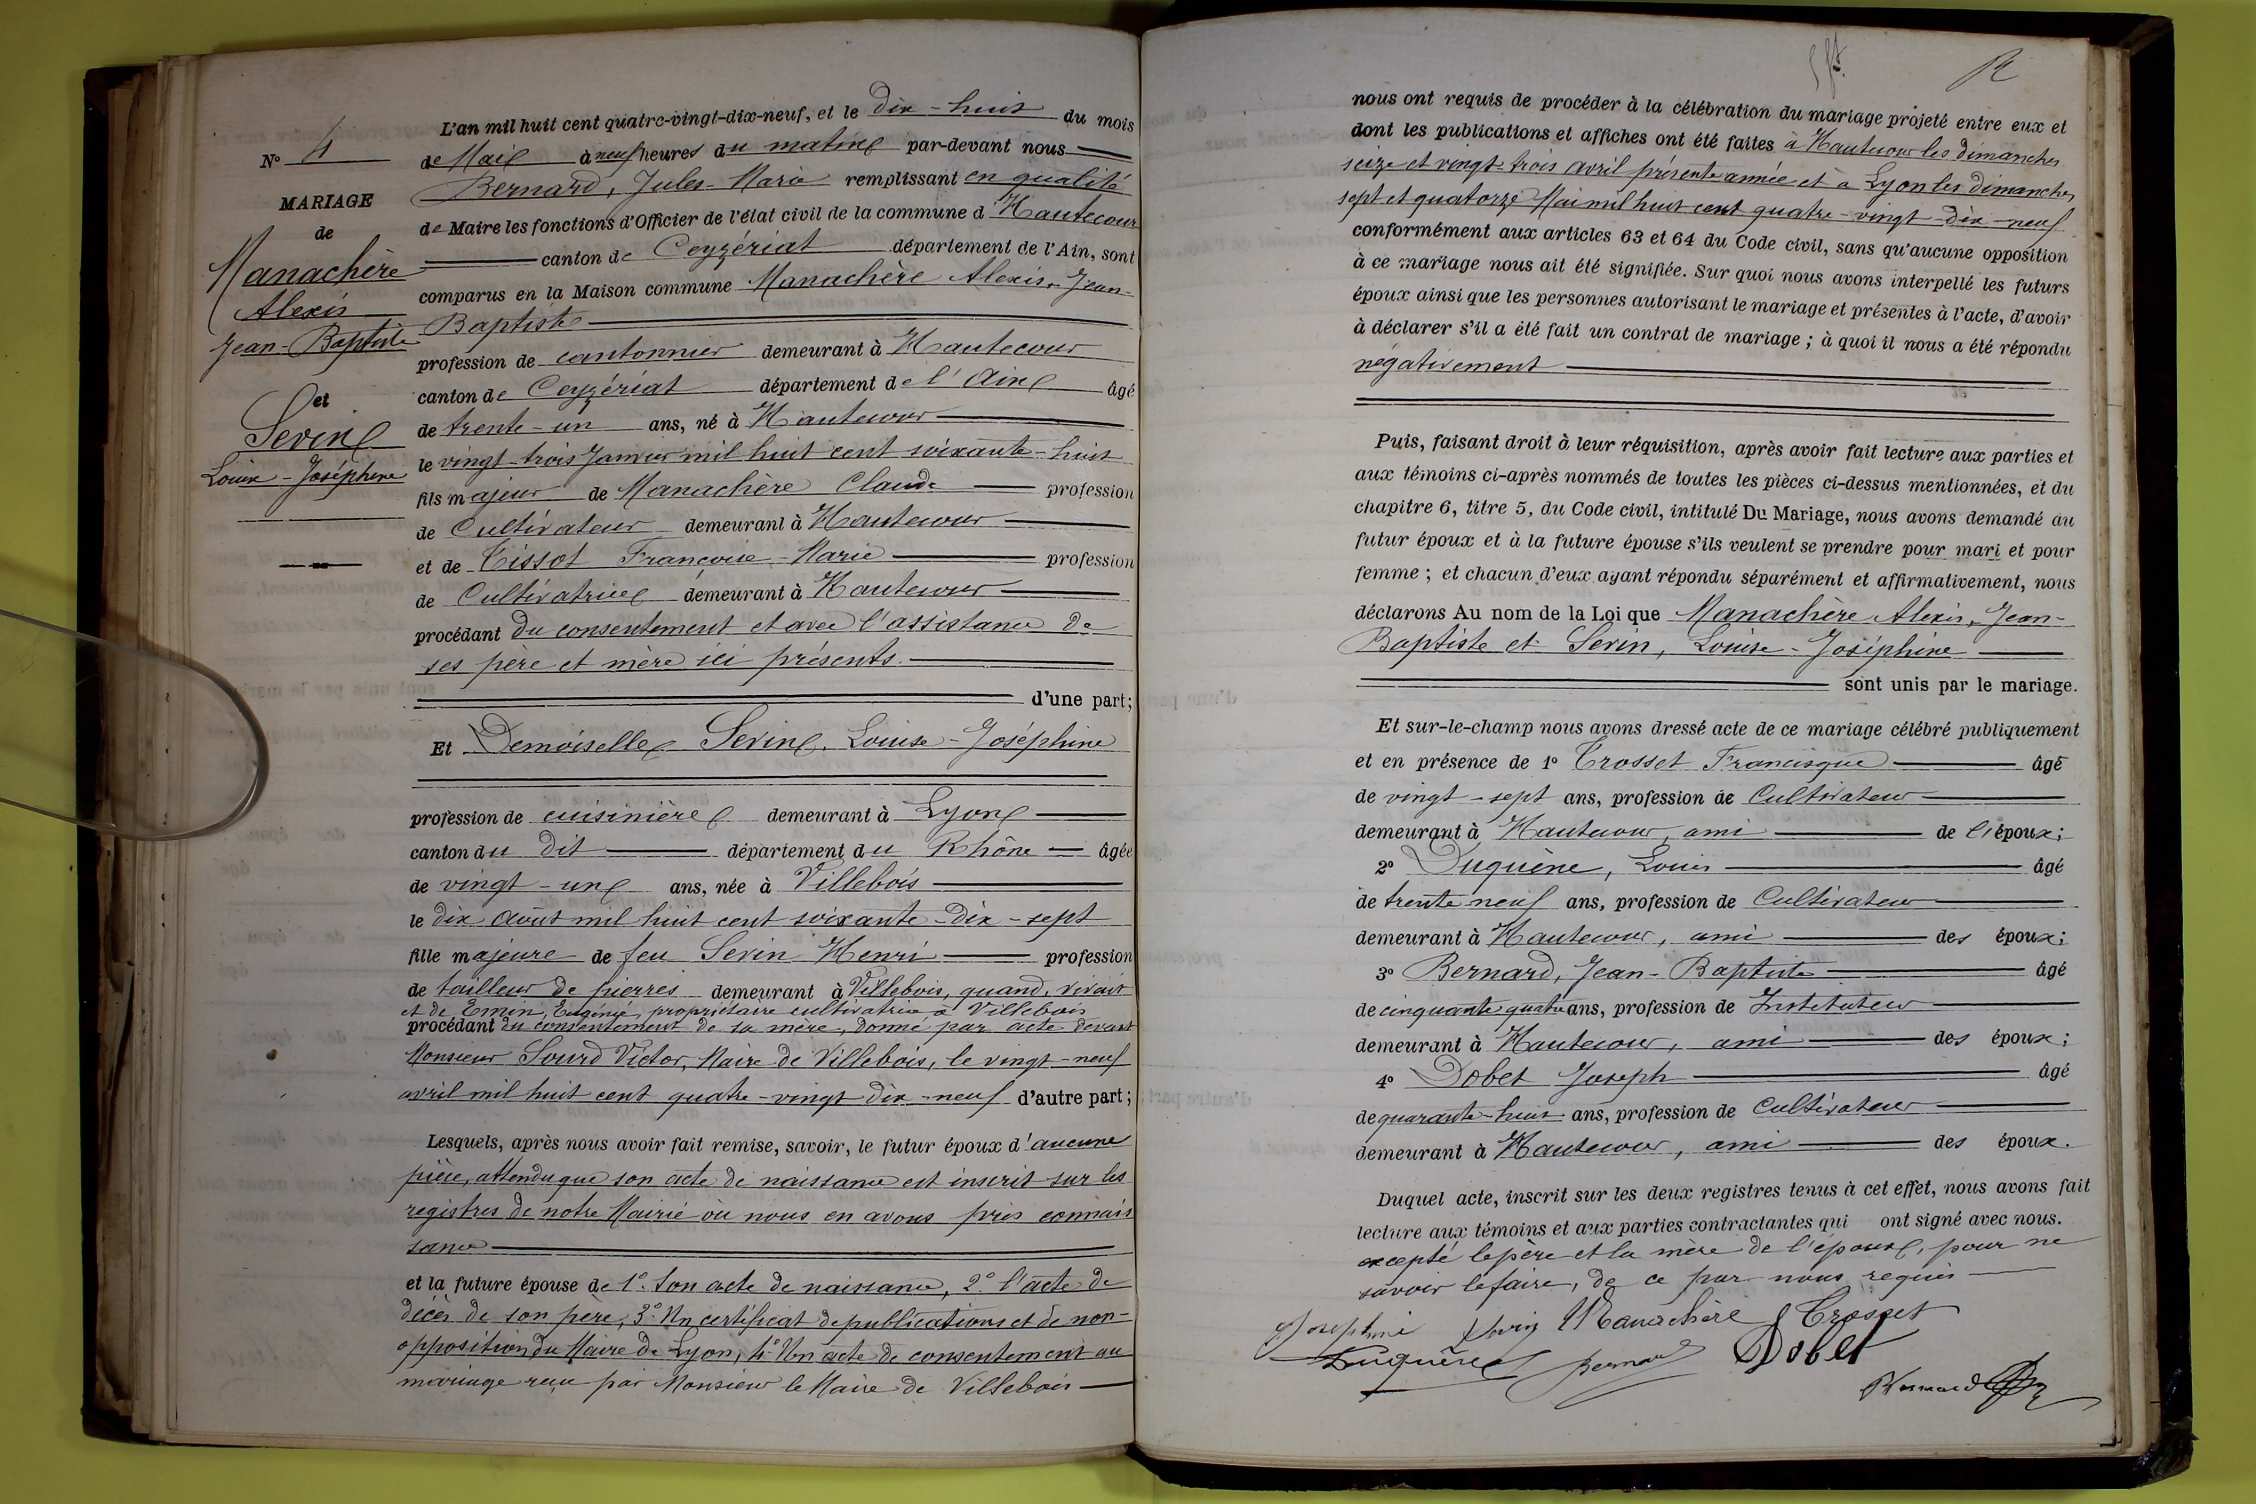 N° 4
MARIAGE
de
Manachère
Alexis
Jean-Baptiste
et
Sevin
Louise-Joséphine
L'an mil huit cent quatre-vingt-dix-neuf, et le dix-huit du mois
de Mai à neuf heures du matin par-devant nous
Bernard, Jules-Marie remplissant en qualité
de Maire les fonctions d'Officier de l'état civil de la commune d'Hautecour
canton de Ceyzériat département de l'Ain, sont
comparus en la Maison commune Manachère Alexis, Jean-
Baptiste
profession de cantonnier demeurant à Hautecour
canton de Ceyzériat département de l'Ain âgé
de trente-un ans, né à Hautecour
le vingt-trois Janvier mil huit cent soixante-huit
fils majeur de Manachère Claude profession
de Cultivateur demeurant à Hautecour
et de Tissot Françoise-Marie profession
de Cultivatrice demeurant à Hautecour
procédant du consentement et avec l'assistance de
ses père et mère ici présents.
d'une part;
Et Demoiselle Sevin, Louise-Joséphine
profession de cuisinière demeurant à Lyon
canton du dit département du Rhône âgée
de vingt-un ans, née à Villebois
le dix août mil huit cent soixante-dix-sept
fille majeure de feu Sevin Henri profession
de tailleur de pierres demeurant à Villebois, quand vivait
et de Emin, Eugénie, propriétaire cultivatrice à Villebois
procédant du consentement de sa mère, donné par acte devant
Monsieur Sourd Victor, Maire de Villebois, le vingt-neuf
avril mil huit cent quatre-vingt dix-neuf d'autre part;
Lesquels, après nous avoir fait remise, savoir, le futur époux d'aucune
pièce, attendu que son acte de naissance est inscrit sur les
registres de notre Mairie où nous en avons pris connais
sance
et la future épouse de 1° Son acte de naissance, 2° l'acte de
décès de son père, 3° Un certificat de publications et de non-
opposition du Maire de Lyon, 4° Un acte de consentement au
mariage reçu par Monsieur le Maire de Villebois
nous ont requis de procéder à la célébration du mariage projeté entre eux et
dont les publications et affiches ont été faites à Hautecour les dimanches
seize et vingt-trois avril présente année et à Lyon les dimanches
sept et quatorze Mai mil huit cent quatre-vingt-dix-neuf
conformément aux articles 63 et 64 du Code civil, sans qu'aucune opposition
à ce mariage nous ait été signifiée. Sur quoi nous avons interpellé les futurs
époux ainsi que les personnes autorisant le mariage et présentes à l'acte, d'avoir
à déclarer s'il a été fait un contrat de mariage; à quoi il nous a été répondu
négativement
Puis, faisant droit à leur réquisition, après avoir fait lecture aux parties et
aux témoins ci-après nommés de toutes les pièces ci-dessus mentionnées, et du
chapitre 6, titre 5, du Code civil, intitulé Du Mariage, nous avons demandé au
futur époux et à la future épouse s'ils veulent se prendre pour mari et pour
femme; et chacun d'eux ayant répondu séparément et affirmativement, nous
déclarons Au nom de la Loi que Manachère Alexis, Jean-
Baptiste et Sevin, Louise-Joséphine
sont unis par le mariage.
Et sur-le-champ nous avons dressé acte de ce mariage célébré publiquement
et en présence de 1° Trosset Francisque âgé
de vingt-sept ans, profession de Cultivateur
demeurant à Hautecour, ami de l'époux;
2° Duquène, Louis âgé
de trente neuf ans, profession de Cultivateur
demeurant à Hautecour, ami des époux;
3° Bernard, Jean-Baptiste âgé
de cinquante quatre ans, profession de Instituteur
demeurant à Hautecour, ami des époux;
4° Dobet Joseph âgé
de quarante-huit ans, profession de Cultivateur
demeurant à Hautecour, ami des époux.
Duquel acte, inscrit sur les deux registres tenus à cet effet, nous avons fait
lecture aux témoins et aux parties contractantes qui ont signé avec nous.
excepté le père et la mère de l'époux, pour ne
savoir le faire, de ce par nous requis
Joséphine Sevin Manachère Trosset
Duquène Bernard Dobet
Bernard